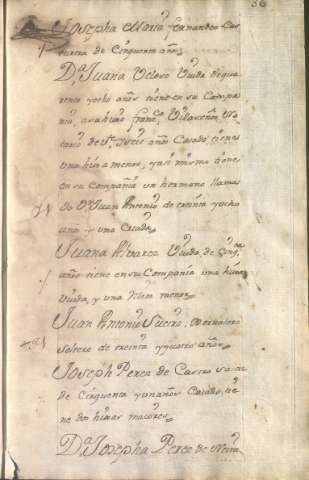 36
Josepha Maria Fernandez Cas
de Cinquenta años
Dª Juana Viuda de qua
renta y ocho años tiene en su Compa
nia, a su hixo Franco Villaseñor
de treinta y seis años Casado, tiene
una hixa menor, y asi mismo tiene
en su Compañia un hermano llama
do Dn Juan Antonio de treinta y ocho
años y una Criada
Juana Alvarez Viuda, de Cinqta
años tiene en su Compania una hixa
Viuda, y una Nieta menor
Juan Antonio Suero, Jornalero
soltero de treinta y quatro años
Joseph Perez de Castro
de Cinquenta y un años Casado, tie
ne dos hixas maiores
Dª Josepha Perez de Neira